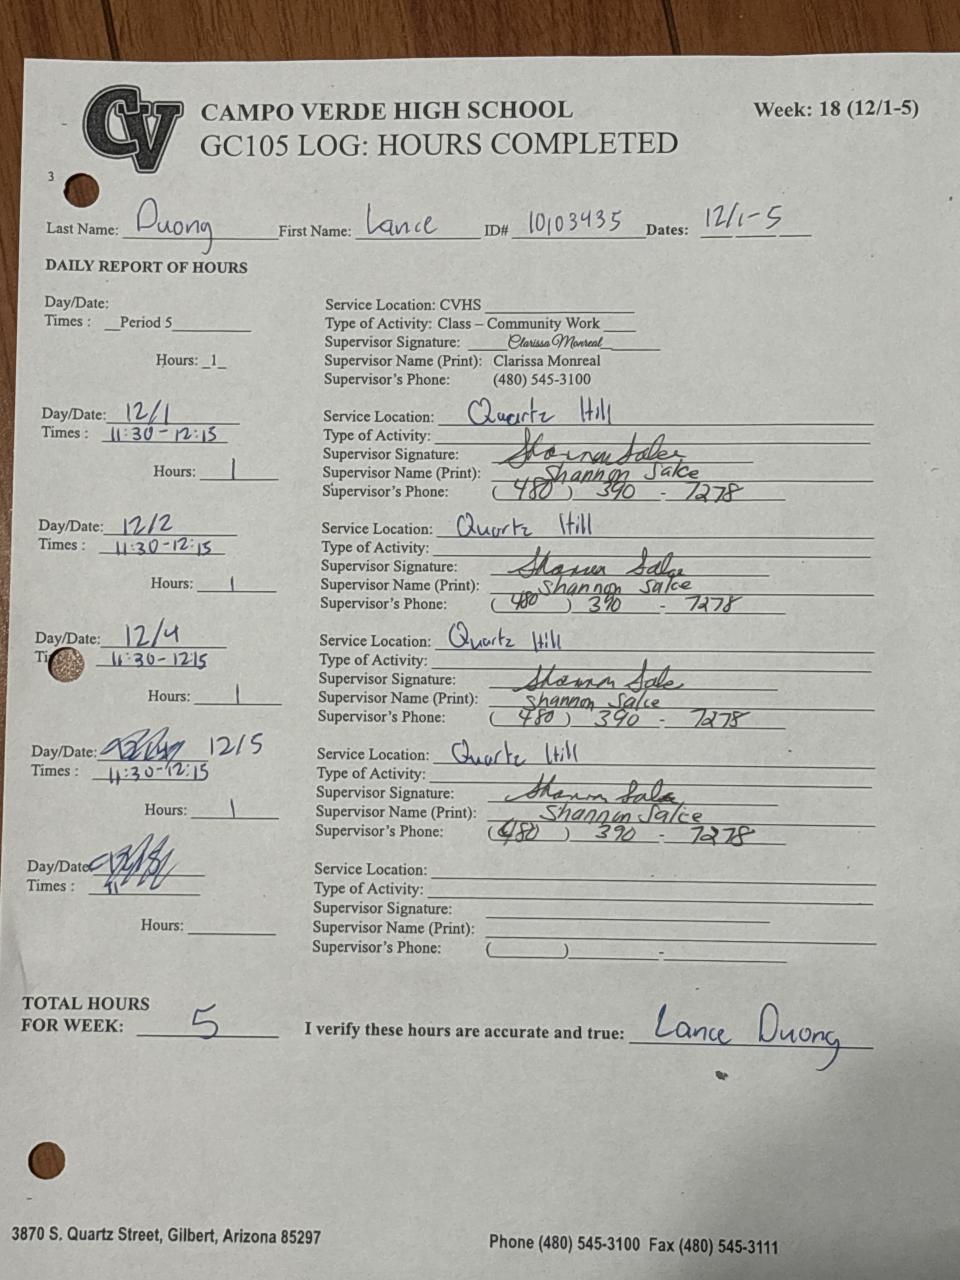 CV
CAMPO VERDE HIGH SCHOOL
Week: 18 (12/1-5)
GC105 LOG: HOURS COMPLETED
3
Last Name: Duong First Name: Lance ID# 10103435 Dates: 12/1-5
DAILY REPORT OF HOURS
Day/Date:
Service Location: CVHS
Times : Period 5
Type of Activity: Class – Community Work
Supervisor Signature: Clarissa Monreal
Hours: 1
Supervisor Name (Print): Clarissa Monreal
Supervisor's Phone: (480) 545-3100
Day/Date: 12/1
Service Location: Quartz Hill
Times : 11:30-12:15
Type of Activity:
Supervisor Signature: Shannon Salce
Hours: 1
Supervisor Name (Print): Shannon Salce
Supervisor's Phone: (480) 390-7278
Day/Date: 12/2
Service Location: Quartz Hill
Times : 11:30-12:15
Type of Activity:
Supervisor Signature: Shannon Salce
Hours: 1
Supervisor Name (Print): Shannon Salce
Supervisor's Phone: (480) 390-7278
Day/Date: 12/4
Service Location: Quartz Hill
Ti 11:30-12:15
Type of Activity:
Supervisor Signature: Shannon Salce
Hours: 1
Supervisor Name (Print): Shannon Salce
Supervisor's Phone: (480) 390-7278
Day/Date: 12/5
Service Location: Quartz Hill
Times : 11:30-12:15
Type of Activity:
Supervisor Signature: Shannon Salce
Hours: 1
Supervisor Name (Print): Shannon Salce
Supervisor's Phone: (480) 390-7278
Day/Date
Service Location:
Times : 11
Type of Activity:
Supervisor Signature:
Hours:
Supervisor Name (Print):
Supervisor's Phone: ( ) -
TOTAL HOURS
FOR WEEK: 5
I verify these hours are accurate and true: Lance Duong
3870 S. Quartz Street, Gilbert, Arizona 85297
Phone (480) 545-3100 Fax (480) 545-3111